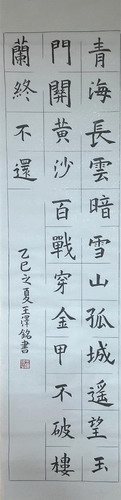 青海長雲暗雪山孤城遙望玉
門關黃沙百戰穿金甲不破樓
蘭終不還
乙巳之夏王澤銘書